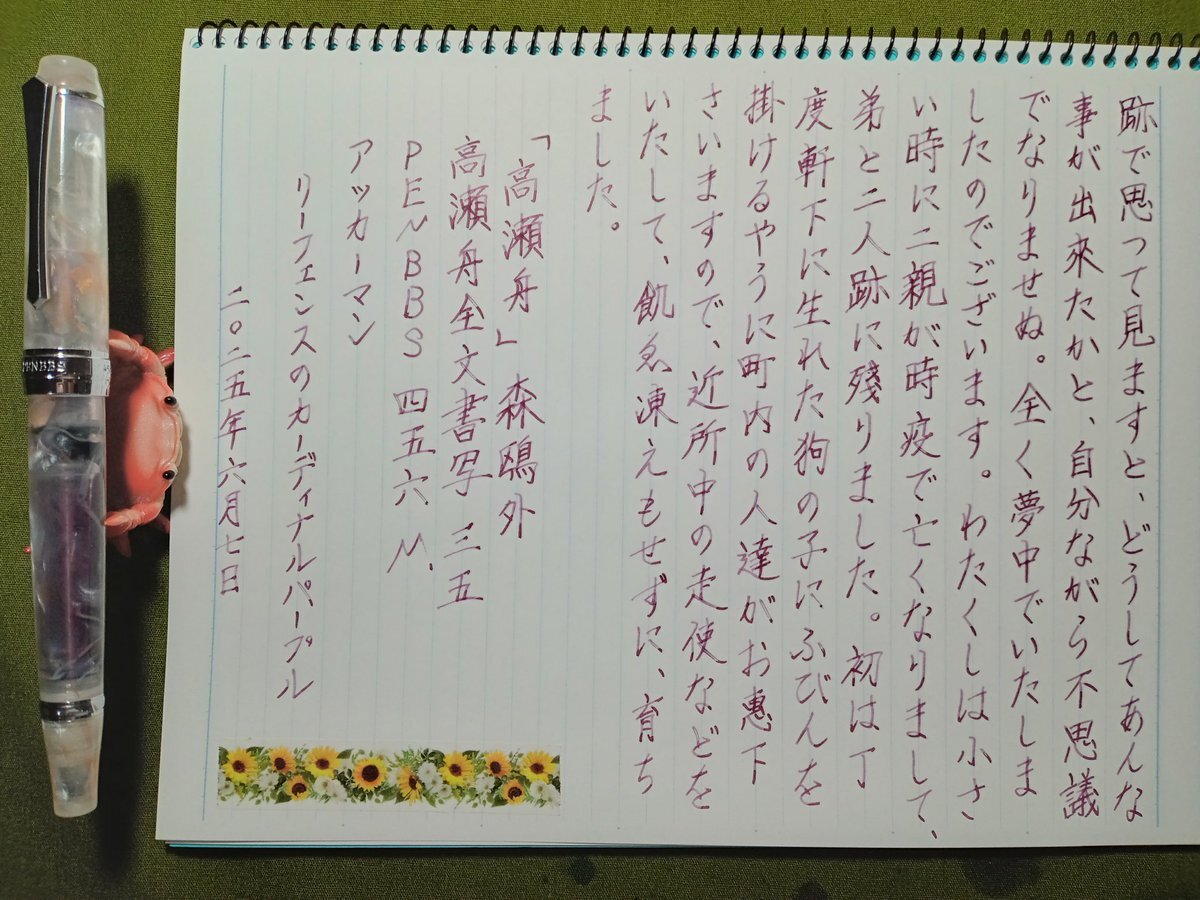 跡で思つて見ますと、どうしてあんな
事が出來たかと、自分ながら不思議
でなりませぬ。全く夢中でいたしま
したのでございます。わたくしは小さ
い時に二親が時疫で亡くなりまして、
弟と二人跡に殘りました。初は丁
度軒下に生れた狗の子にふびんを
掛けるやうに町内の人達がお惠下
さいますので、近所中の走使などを
いたして、飢ゑ凍えもせずに、育ち
ました。
「高瀬舟」森鴎外
高瀬舟全文書写 三五
PENBBS 四五六 M.
アッカーマン
リーフェンスのカーディナルパープル
二〇二五年六月七日
PENBBS